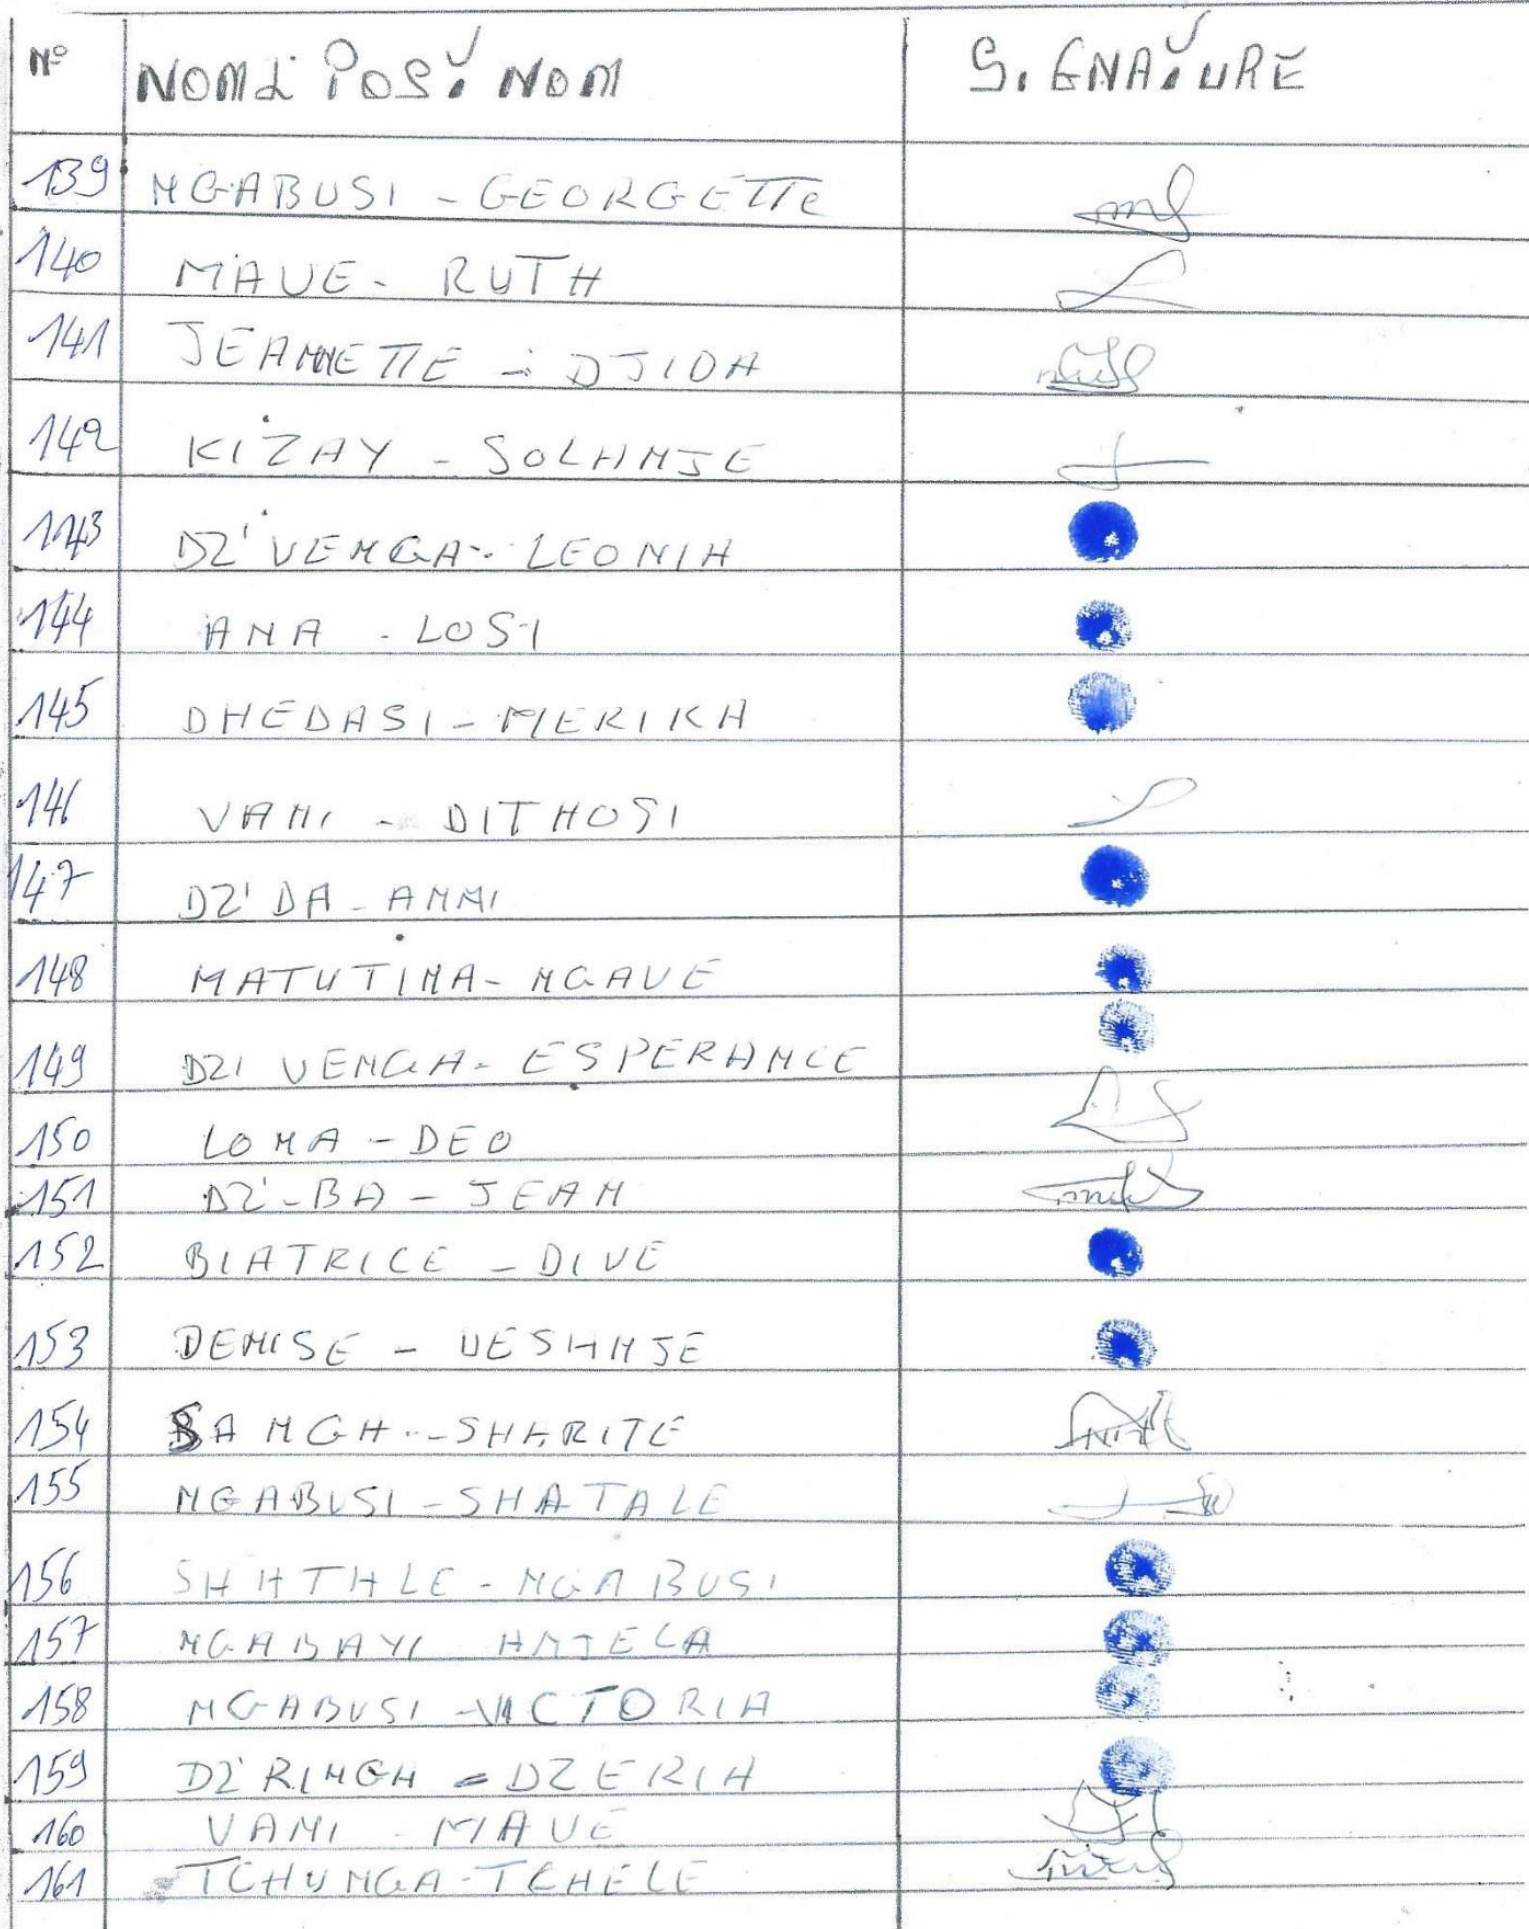 N° NOM & POST NOM SIGNATURE
139 NGABUSI - GEORGETTE
140 MAVE - RUTH
141 JEANNETTE - DJIDA
142 KIZAY - SOLANJE
143 DZ'VENGA - LEONIA
144 ANA - LOSI
145 DHEDASI - MERIKA
146 VANI - DITHOSI
147 DZ'DA - ANNI
148 MATUTINA - NGAVE
149 DZI VENGA - ESPERANCE
150 LONA - DEO
151 DZ'-BA - JEAN
152 BIATRICE - DIVE
153 DENISE - VESHNJE
154 SANGA - SHARITE
155 NGABUSI - SHATALE
156 SHATALE - NGABUSI
157 NGABAYI ANJELA
158 NGABUSI - VICTORIA
159 DZ'RINGA - DZERIA
160 VANI - MAVE
161 TCHUNGA - TCHELE